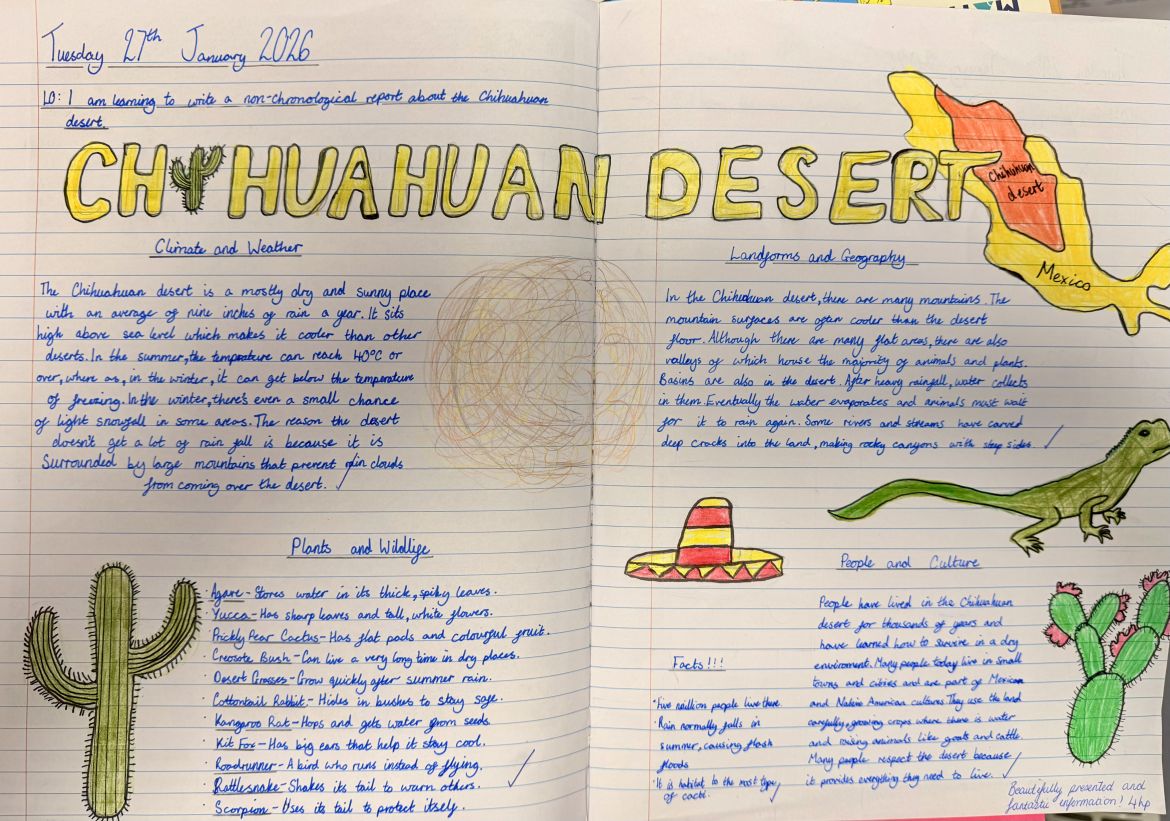 Tuesday 27th January 2026
LO: I am learning to write a non-chronological report about the Chihuahuan
desert.
CHIHUAHUAN DESERT
Climate and Weather
The Chihuahuan desert is a mostly dry and sunny place
with an average of nine inches of rain a year. It sits
high above sea level which makes it cooler than other
deserts. In the summer, the temperature can reach 40°C or
over, where as, in the winter, it can get below the temperature
of freezing. In the winter, there's even a small chance
of light snowfall in some areas. The reason the desert
doesn't get a lot of rain fall is because it is
Surrounded by large mountains that prevent rain clouds
from coming over the desert.
Plants and Wildlife
· Agave - Stores water in its thick, spiky leaves.
· Yucca - Has sharp leaves and tall, white flowers.
· Prickly Pear Cactus - Has flat pads and colourful fruit.
· Creosote Bush - Can live a very long time in dry places.
· Desert Grasses - Grow quickly after summer rain.
· Cottontail Rabbit - Hides in bushes to stay safe.
· Kangaroo Rat - Hops and gets water from seeds
· Kit Fox - Has big ears that help it stay cool.
· Roadrunner - A bird who runs instead of flying.
· Rattlesnake - Shakes its tail to warn others.
· Scorpion - Uses its tail to protect itself.
Chihuhuan
desert
Mexico
Landforms and Geography
In the Chihuahuan desert, there are many mountains. The
mountain surfaces are often cooler than the desert
floor. Although there are many flat areas, there are also
valleys of which house the majority of animals and plants.
Basins are also in the desert. After heavy rainfall, water collects
in them. Eventually the water evaporates and animals must wait
for it to rain again. Some rivers and streams have carved
deep cracks into the land, making rocky canyons with steep sides.
Facts!!!
· Five million people live there.
· Rain normally falls in
summer, causing flash
floods
· It is habitat to the most type
of cacti.
People and Culture
People have lived in the Chihuahuan
desert for thousands of years and
have learned how to survive in a dry
enviroment. Many people today live in small
towns and cities and are part of Mexican
and Native American cultures. They use the land
carefully, growing crops where there is water
and raising animals like goats and cattle.
Many people respect the desert because
it provides everything they need to live.
Beautifully presented and
fantastic information! 4hp